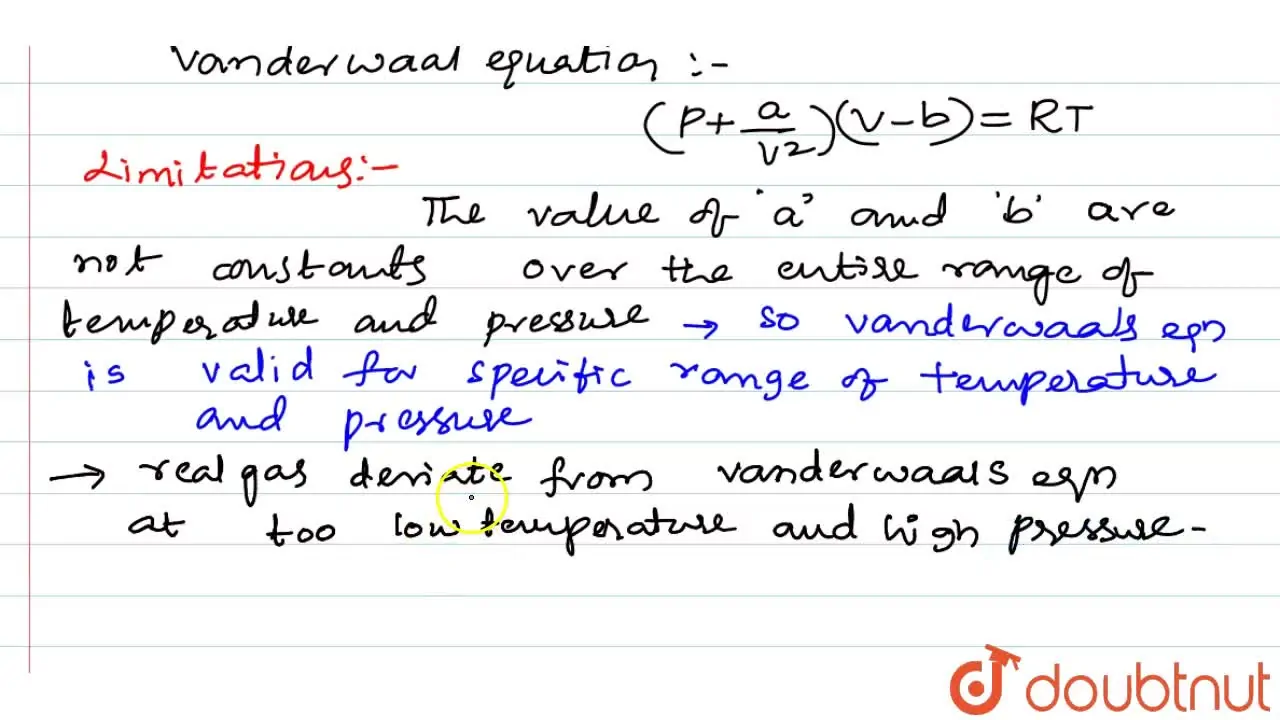 vanderwaal equation :-
(P+a/V2)(V-b)=RT
Limitations:-
The value of 'a' and 'b' are
not constants over the entire range of
temperature and pressure → so vanderwaals eqn
is valid for specific range of temperature
and pressure
→ real gas deviate from vanderwaals eqn
at too low temperature and high pressure-
doubtnut